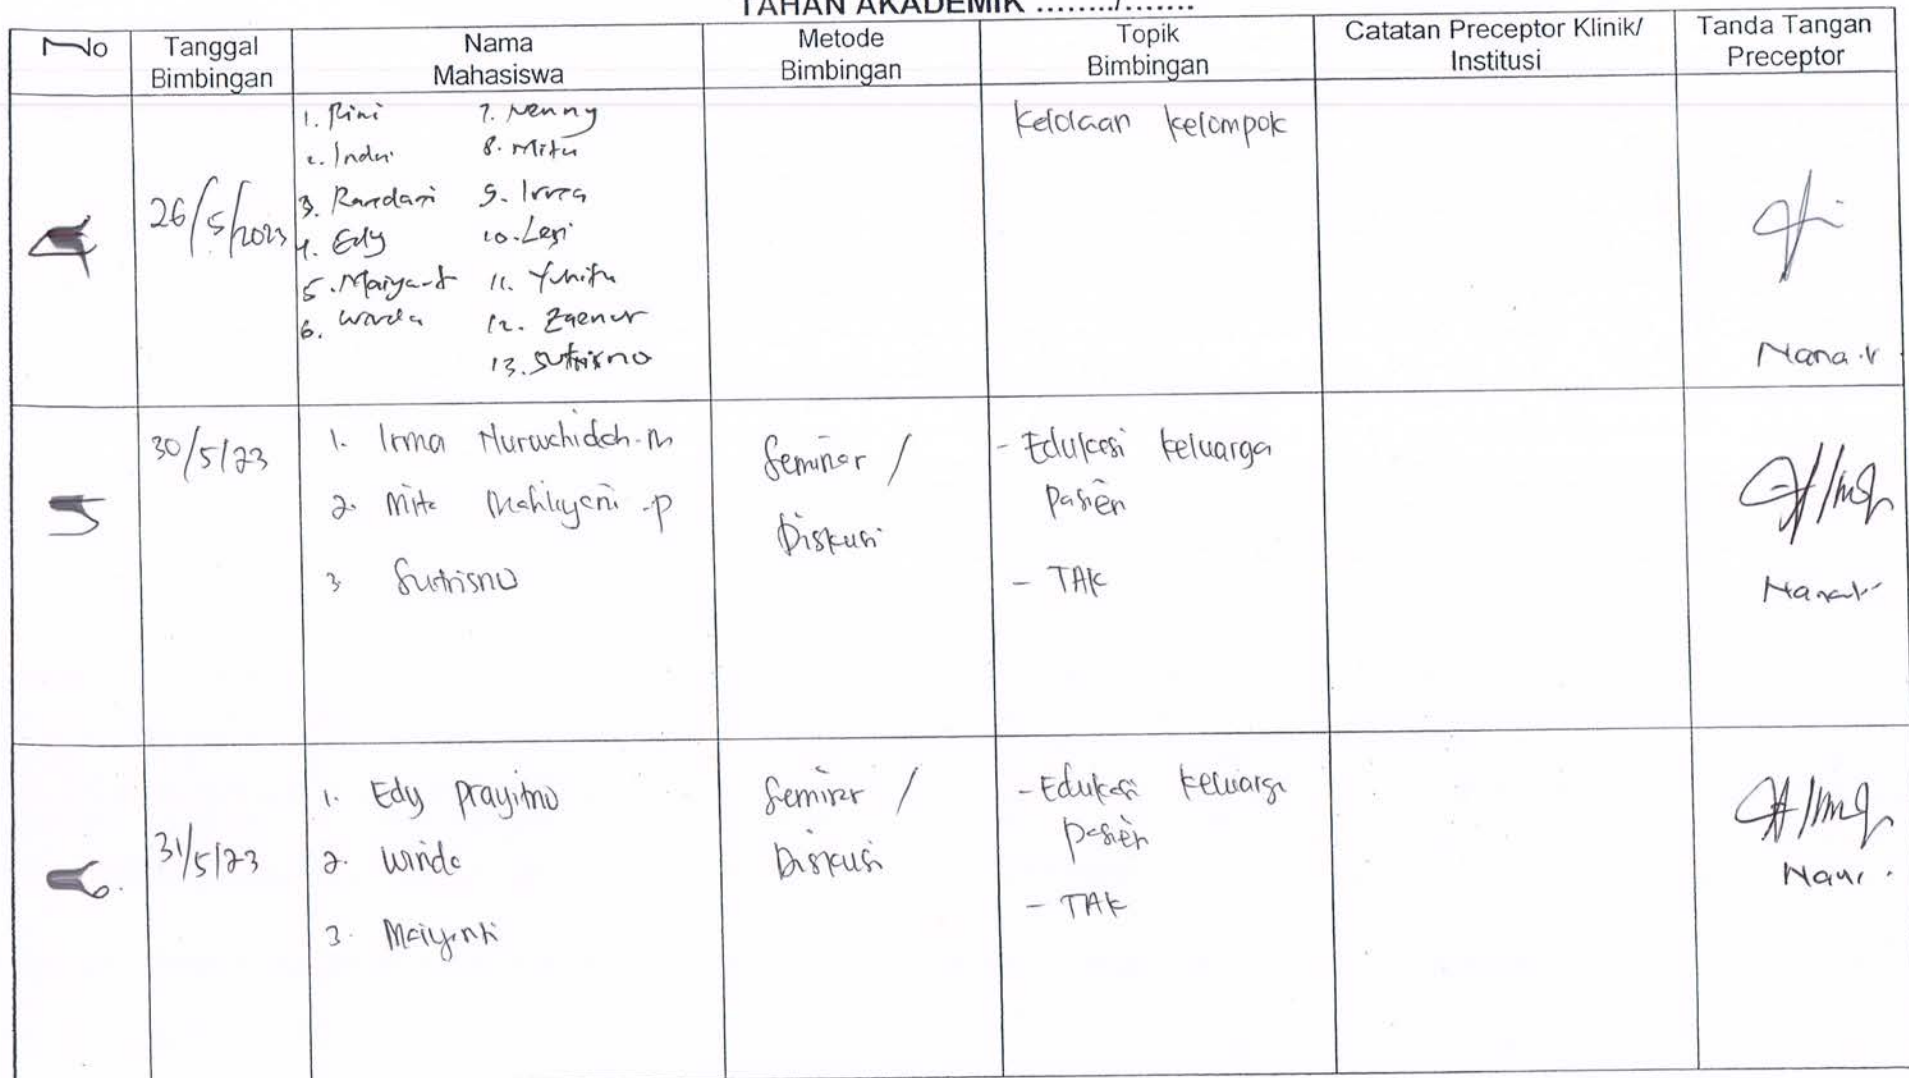 TAHAN AKADEMIK ......../.......
No
Tanggal Bimbingan
Nama Mahasiswa
Metode Bimbingan
Topik Bimbingan
Catatan Preceptor Klinik/ Institusi
Tanda Tangan Preceptor
4
26/5/2023
1. Rini
2. Indri
3. Ramdani
4. Edy
5. Maiyanti
6. Winda
7. Nenny
8. Mita
9. Irma
10. Lesi
11. Yunita
12. Zaenur
13. Sutrisno
Kelolaan kelompok
5
30/5/23
1. Irma Nurwchidah.M
2. Mita .p
3. Sutrisno
Seminar /
Diskusi
- Edukasi keluarga
pasien
- TAK
6.
31/5/23
1. Edy prayitno
2. Winda
3. Maiyanti
Seminar /
Diskusi
- Edukasi keluarga
pasien
- TAK